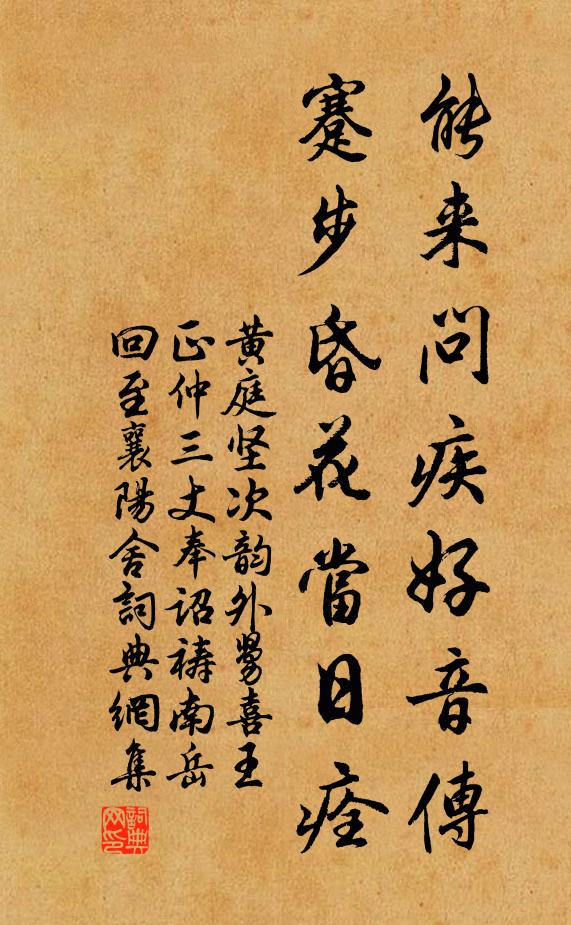 能来問疾好音傳
蹇步昏花當日痊
黄庭坚次韵外舅喜王
正仲三丈奉詔禱南岳
回至襄陽舍詞典網集
詞典网印